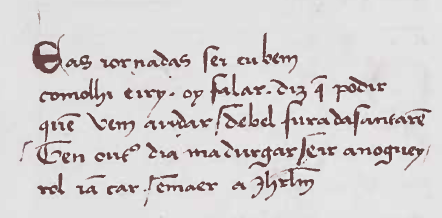 Das iornadas sei eu bem
como lhi eiry. oy falar. diz q̄ podir
quē vem andar/ de bel furad a santarē
E en out° dia madurgar/ e ir a nogueY.
rol iā tar. / e maer a Jhrlm̄